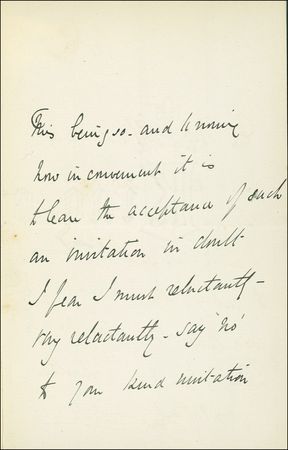 This being so - and knowing
how inconvenient it is
to leave the acceptance of such
an invitation in doubt -
I fear I must reluctantly -
very reluctantly - say 'no'
to your kind invitation